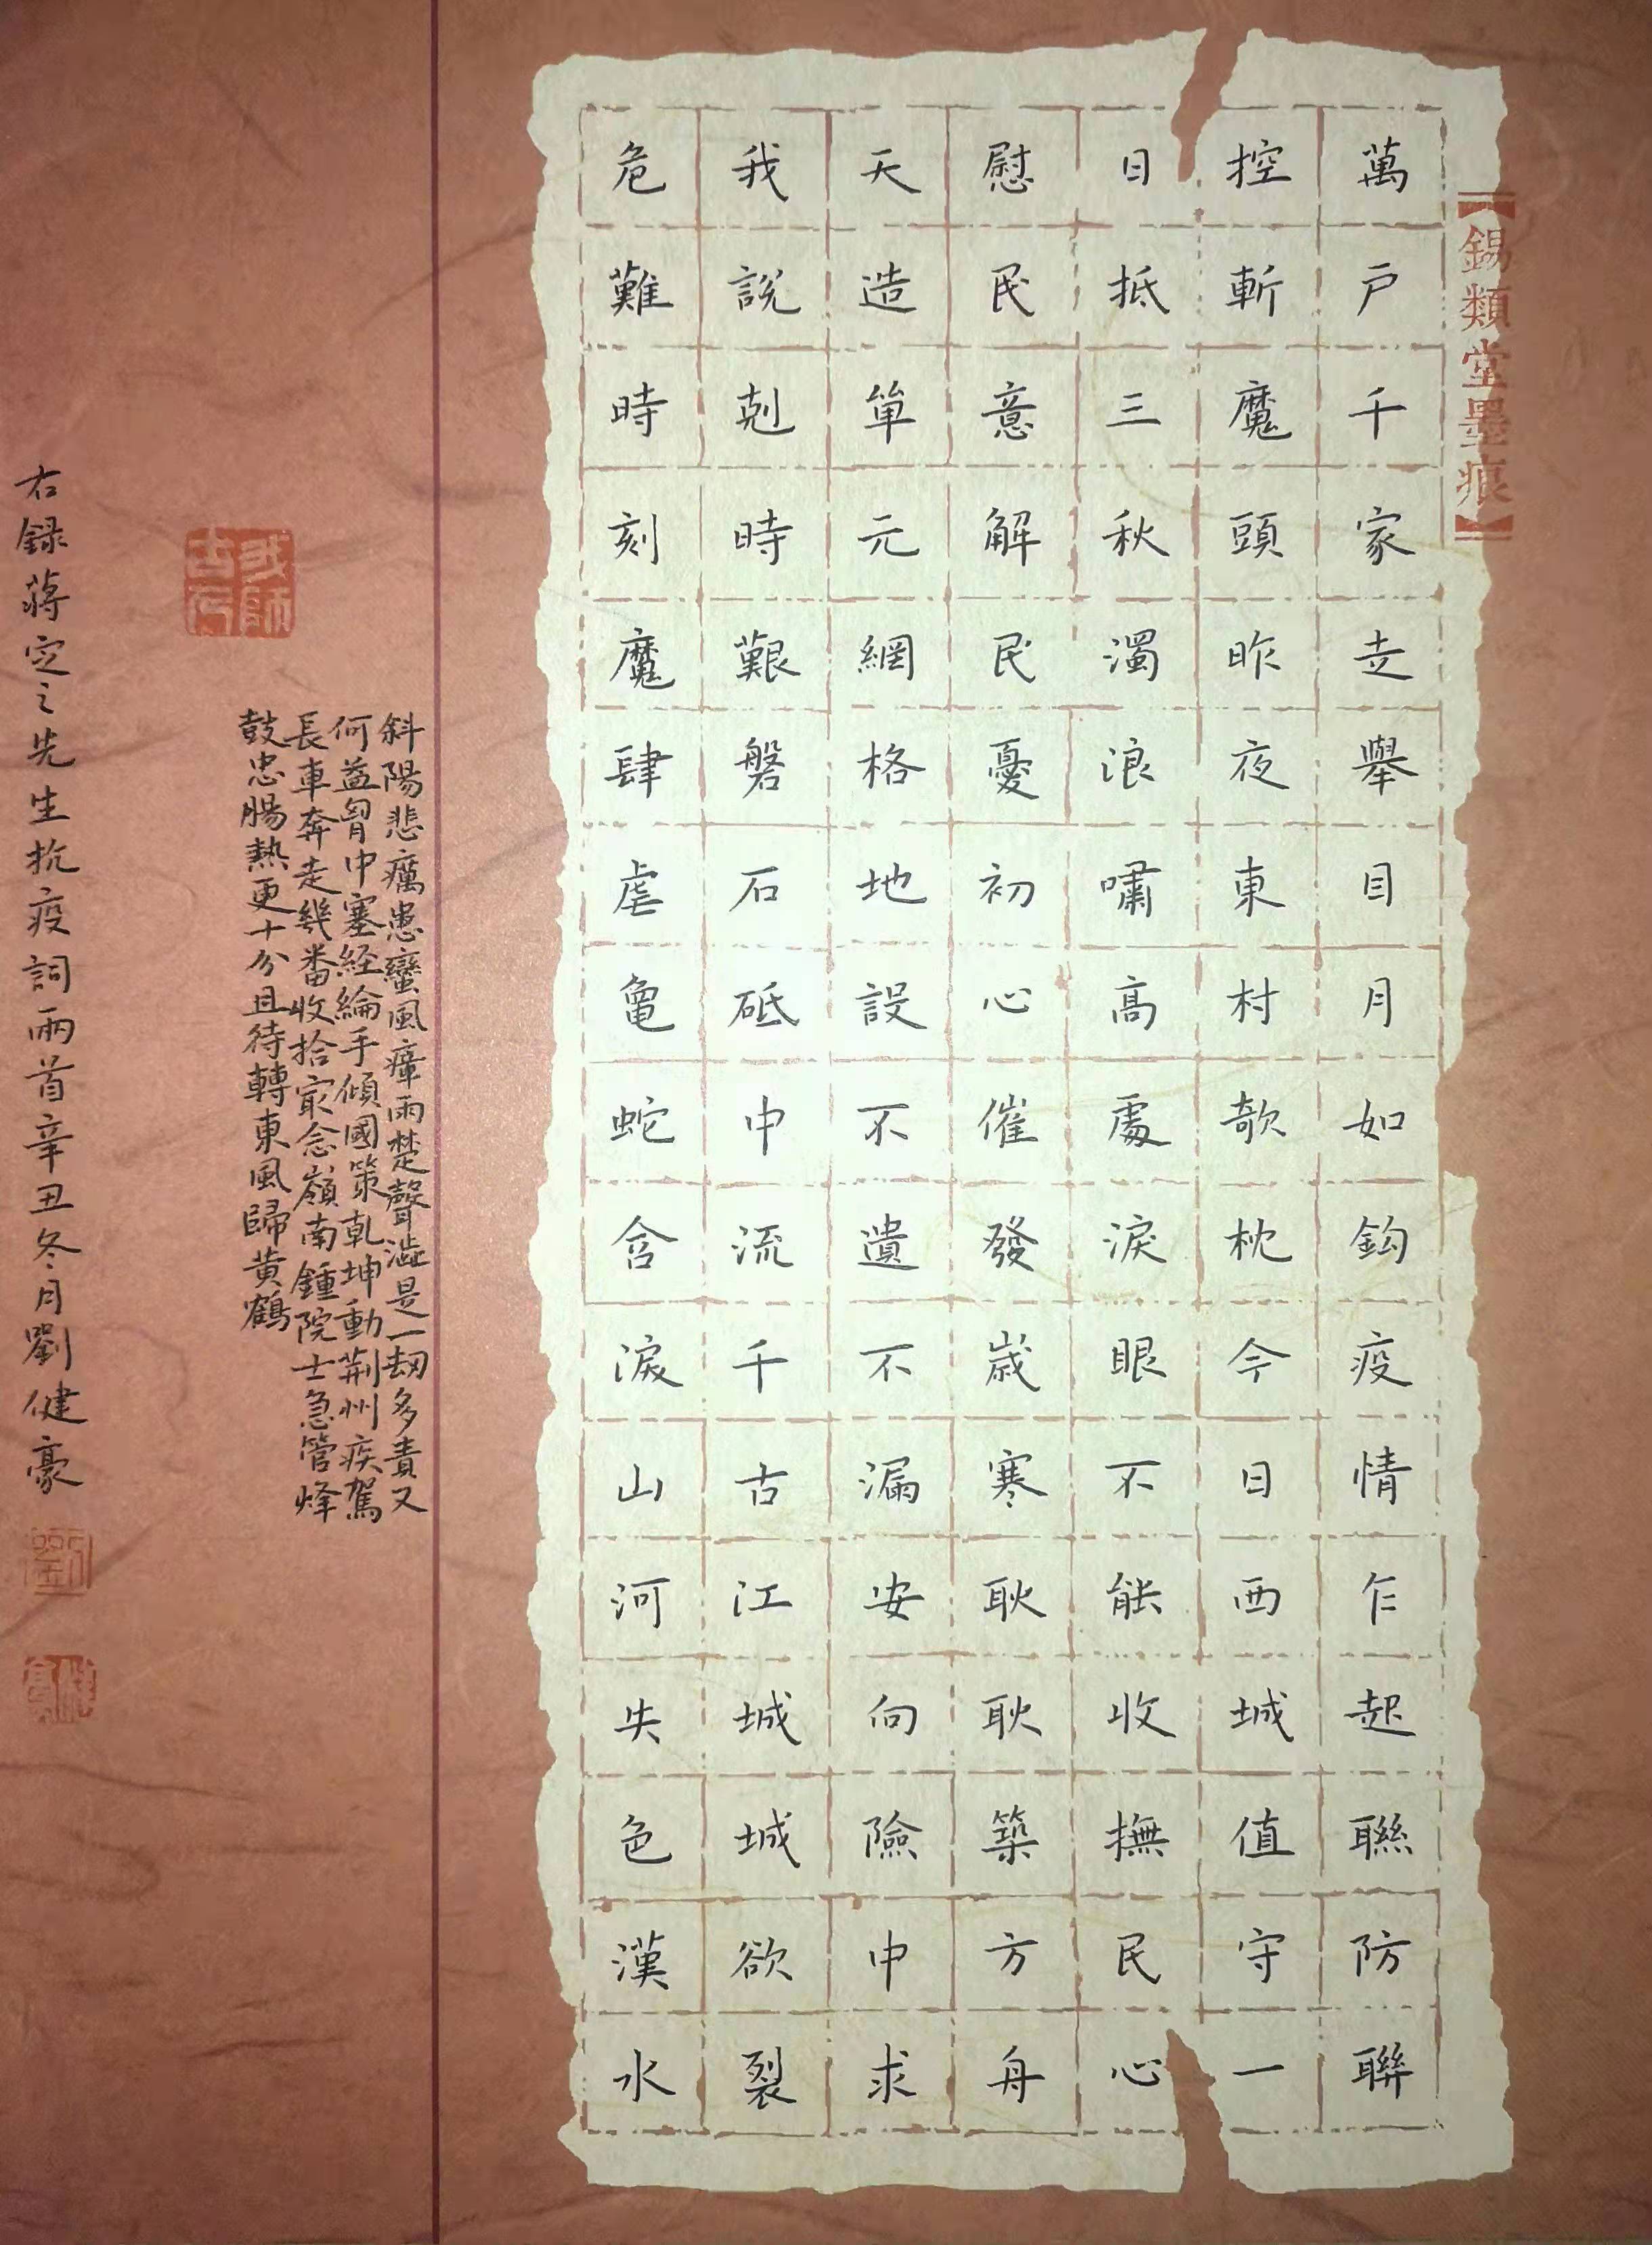 【錫類堂墨痕】
萬戶千家走舉目月如鈎疫情乍起聯防聯
控斬魔頭昨夜東村欹枕今日西城值守一
日抵三秋濁浪嘯高處淚眼不能收撫民心
慰民意解民憂初心催發歲寒耿耿築方舟
天造單元網格地設不遺不漏安向險中求
我說剋時艱磐石砥中流千古江城城欲裂
危難時刻魔肆虐龜蛇含淚山河失色漢水
斜陽悲癘患蠻風瘴雨楚聲澁是一劫多責又
何益胷中塞経綸手傾國策乾坤動荊州疾駕
長車奔走幾番收拾寂念嶺南鍾院士急管烽
鼓忠腸熱更十分且待轉東風歸黃鶴
右録蔣定之先生抗疫詞兩首辛丑冬月劉健豪